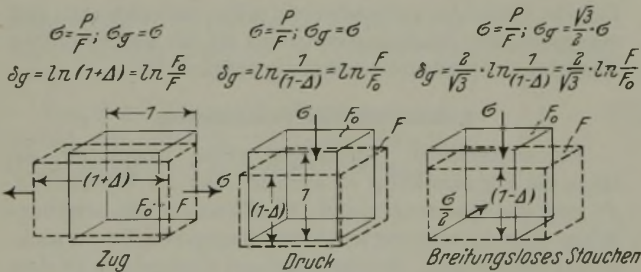 σ=P/F; σg=σ
δg=ln(1+Δ)=ln F₀/F
1
(1+Δ)
F₀
F
Zug
σ=P/F; σg=σ
δg=ln 1/(1-Δ)=ln F/F₀
σ
F₀
F
σ
(1-Δ)
1
Druck
σ=P/F; σg=√3/2·σ
δg=2/√3·ln 1/(1-Δ)=2/√3·ln F/F₀
σ
F₀
F
σ/2
(1-Δ)
Breitungsloses Stauchen